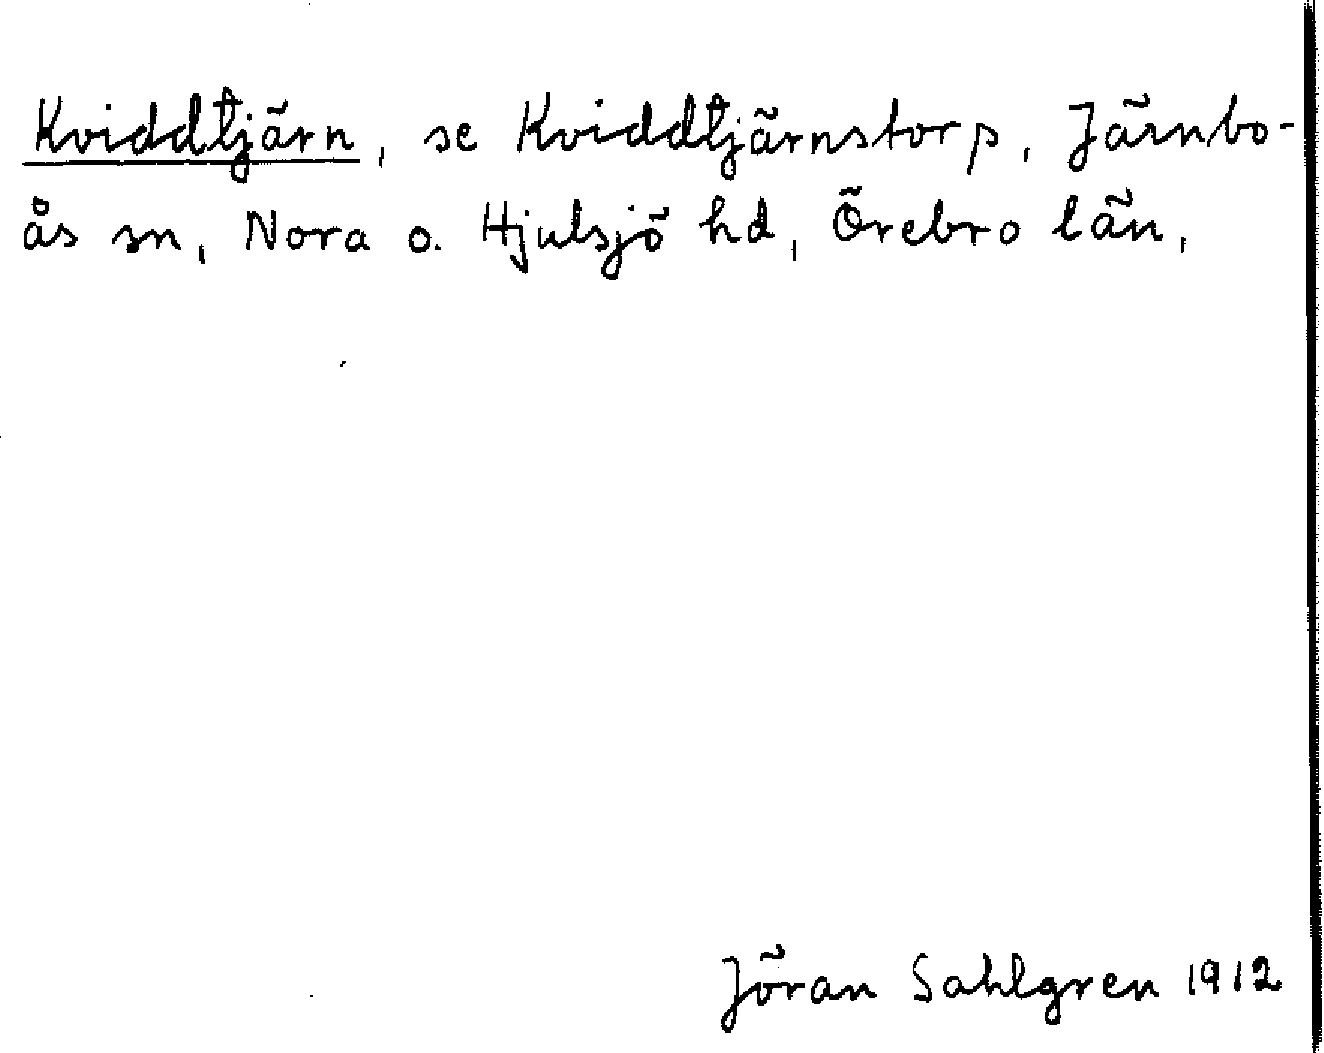 Kviddtjärn, se Kviddtjärnstorp, Järnbo-
ås sn, Nora o. Hjulsjö hd, Örebro län.
Jöran Sahlgren 1912